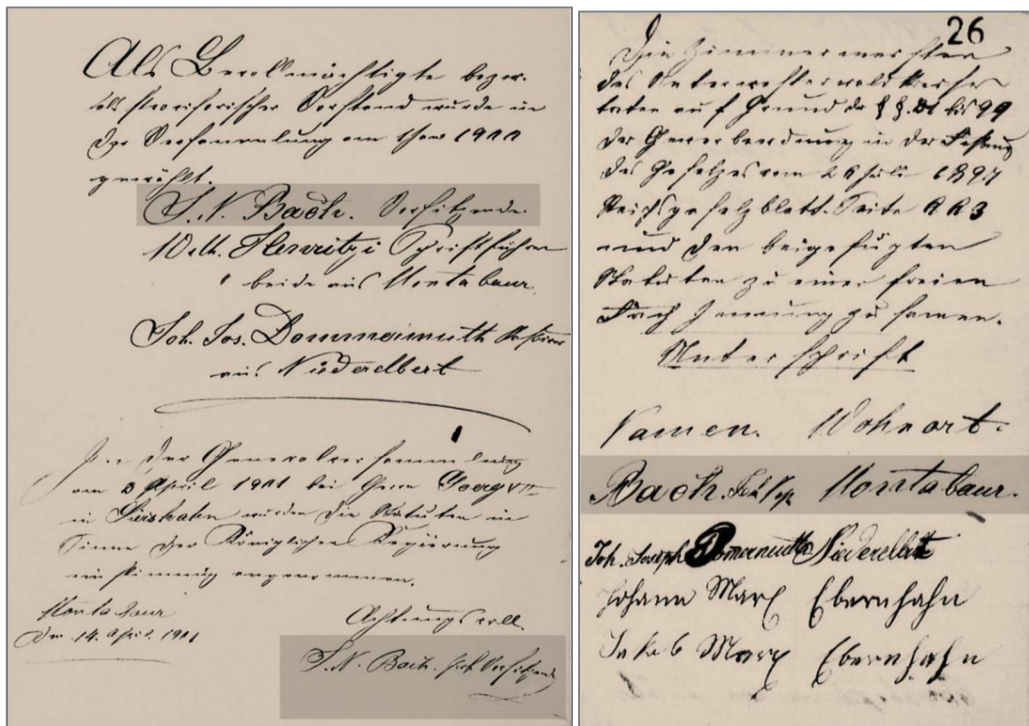 Als Bevollmächtigte bezw.
als provisorischer Vorstand wurde in
der Versammlung am 1900
gewählt.
J. N. Bach. Vorsitzender
Wilh. Henritzi Schriftführer
beide aus Montabaur
Joh. Jos. Dommermuth Kassierer
aus Niederelbert
In der Generalversammlung
am 3 April 1901 bei Herrn Georg
in Siershahn wurden die Statuten im
Sinne der Königlichen Regierung
einstimmig angenommen.
Montabaur
Den 14. April 1901
Achtungsvoll
J. N. Bach. Vorsitzender
26
Die Zimmermeister
des Unterwesterwaldkreises
traten auf Grund der §§. 81 bis 99
der Gewerbeordnung in der Fassung
des Gesetzes vom 26 Juli 1897
Reichsgesetzblatt. Seite 663
und den beigefügten
Statuten zu einer freien
Fach Innung zusamen.
Unterschrift
Namen. Wohnort.
Bach. Montabaur.
Joh. Joseph Domermuth Niederelbert
Johann Marx Ebernhahn
Jakob Marx Ebernhahn